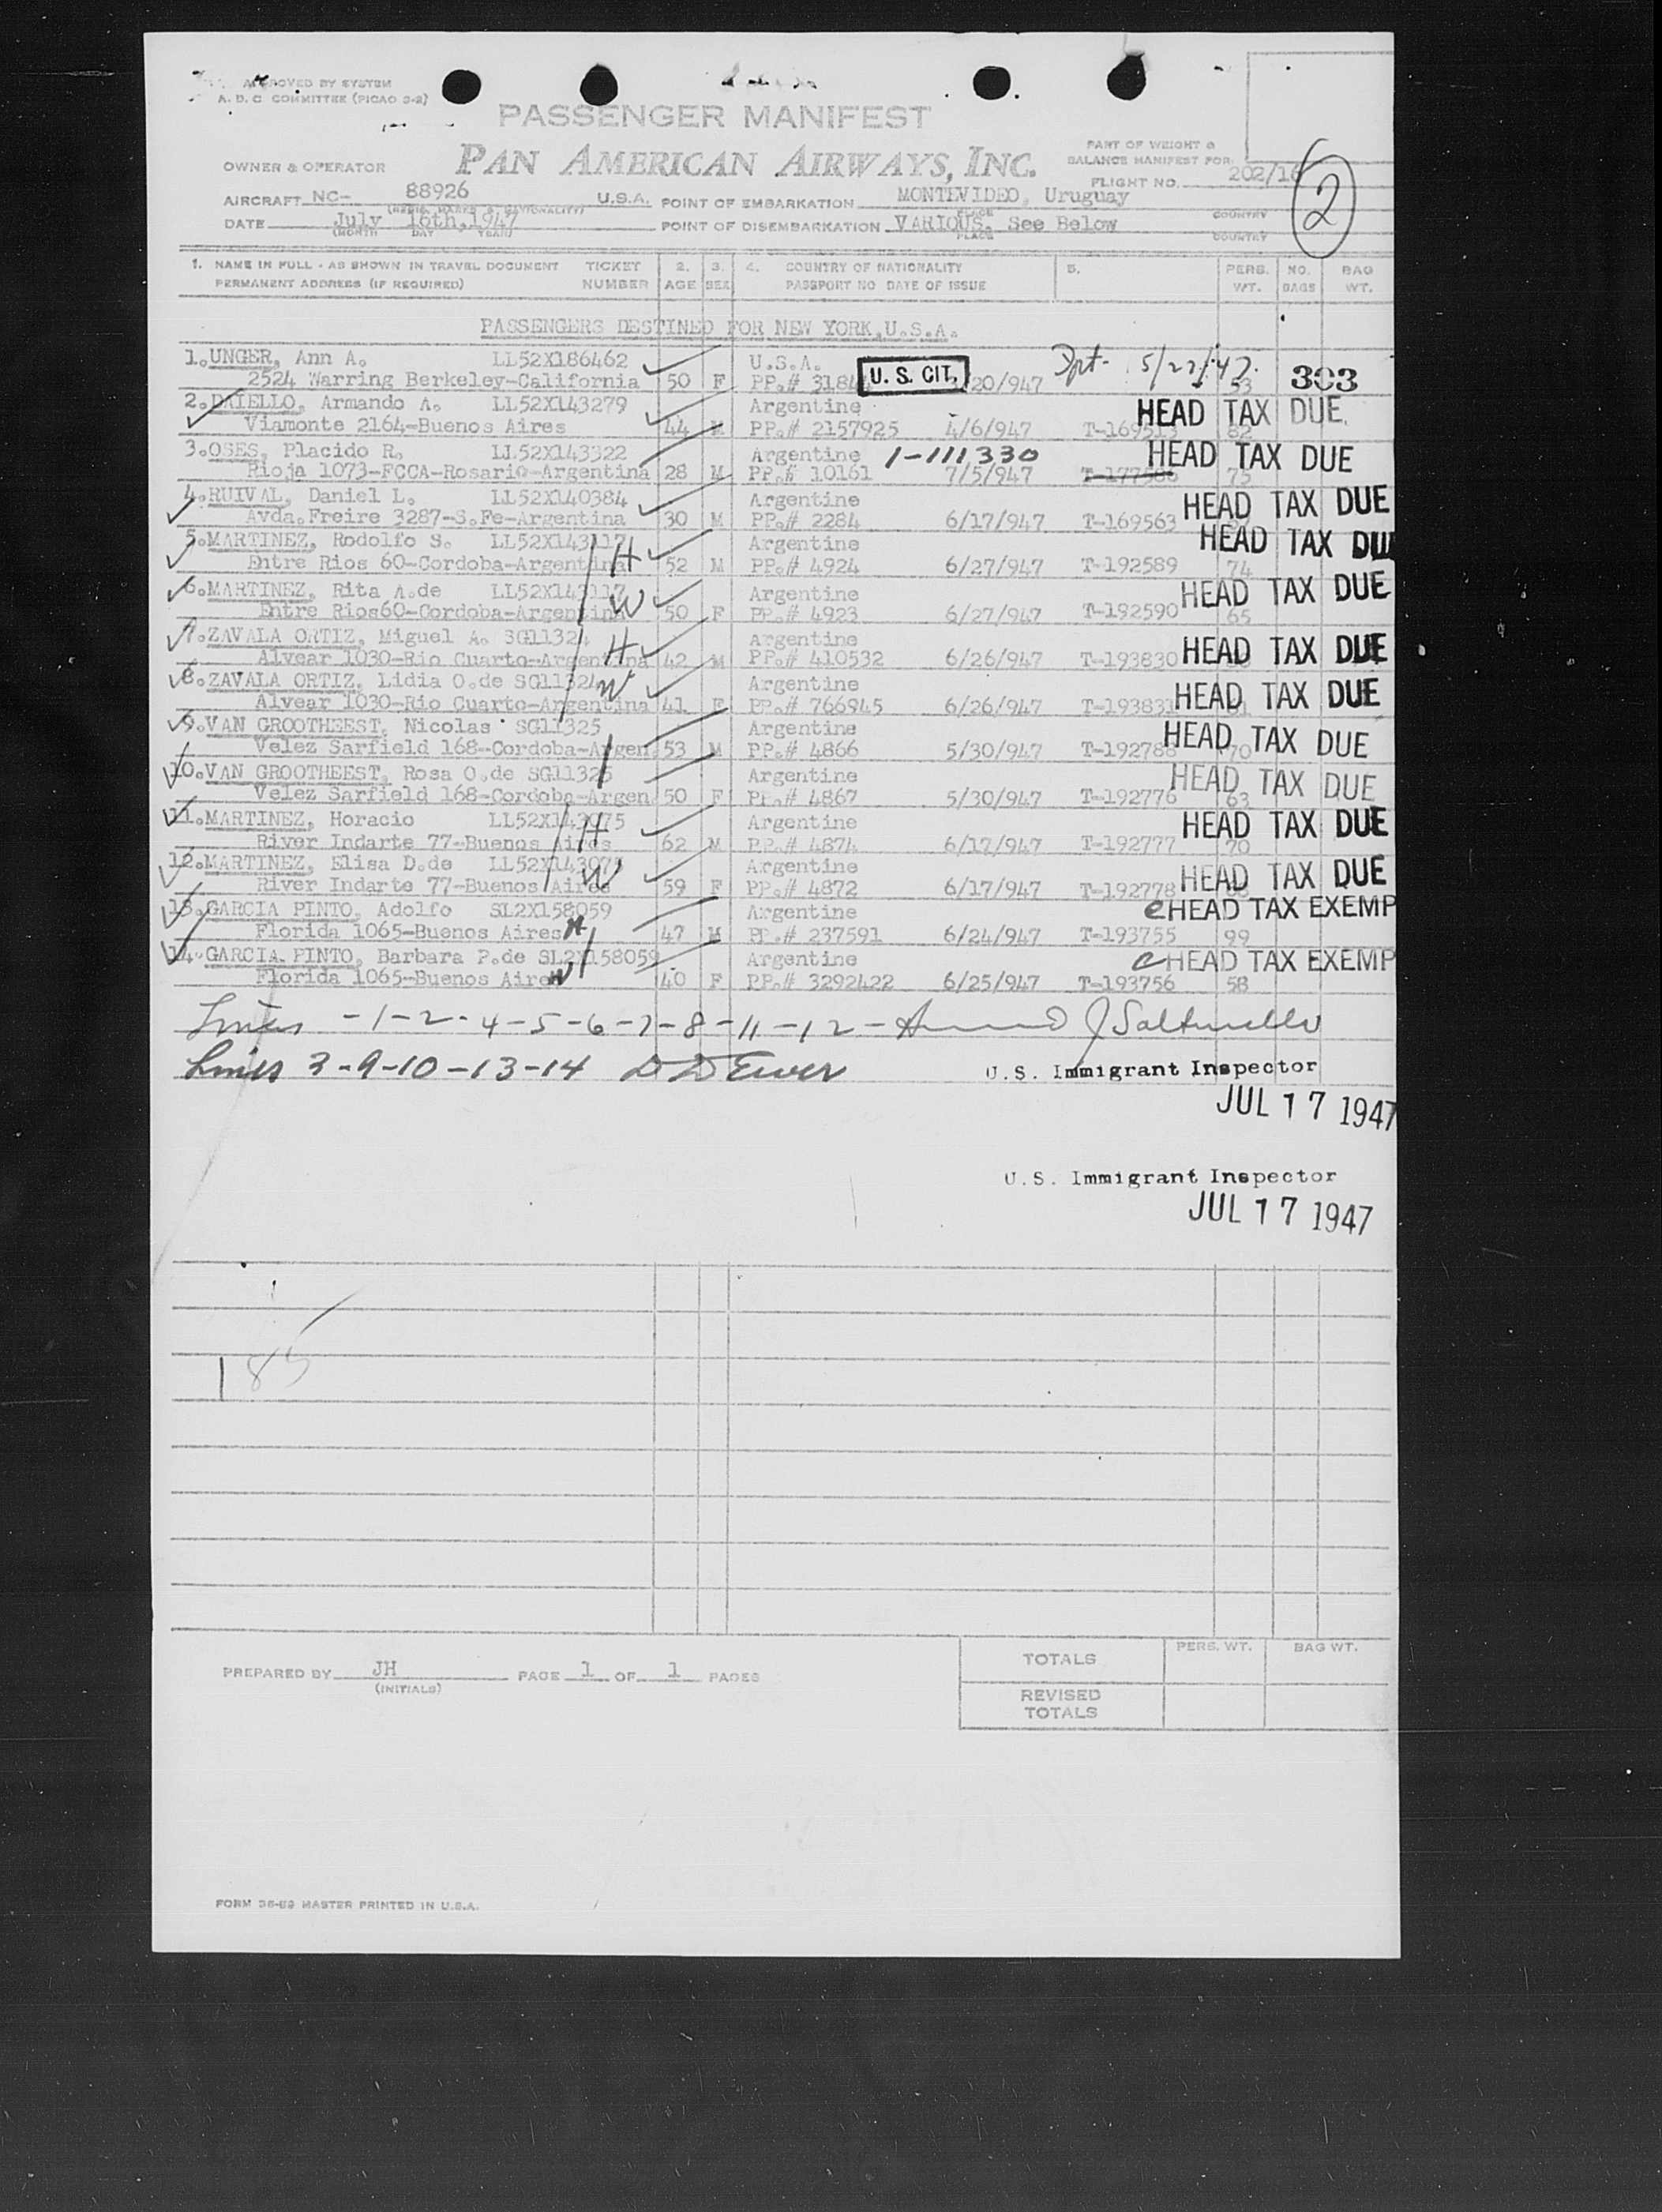 APPROVED BY SYSTEM
A. D. C. COMMITTEE (PICAO 3-2)
PASSENGER MANIFEST
PAN AMERICAN AIRWAYS, INC.
PART OF WEIGHT &
BALANCE MANIFEST FOR
OWNER & OPERATOR
FLIGHT NO. 202/16
2
AIRCRAFT NC- 88926 U.S.A. POINT OF EMBARKATION MONTEVIDEO, Uruguay
PLACE COUNTRY
DATE July 16th, 1947 POINT OF DISEMBARKATION VARIOUS. See Below
(MONTH DAY YEAR) PLACE COUNTRY
1. NAME IN FULL - AS SHOWN IN TRAVEL DOCUMENT TICKET 2. 3. 4. COUNTRY OF NATIONALITY 5. PERS. NO. BAG
PERMANENT ADDRESS (IF REQUIRED) NUMBER AGE SEX PASSPORT NO DATE OF ISSUE WT. BAGS WT.
PASSENGERS DESTINED FOR NEW YORK,U.S.A.
1.UNGER, Ann A. LL52X186462 U.S.A. 5/27/47
2524 Warring Berkeley-California 50 F PP.# U. S. CIT. 20/947 53 303
2.DAIELLO, Armando A. LL52X143279 Argentine HEAD TAX DUE
Viamonte 2164-Buenos Aires 44 M PP.# 2157925 4/6/947 82
3.OSES, Placido R. LL52X143322 Argentine 1-111330 HEAD TAX DUE
Rioja 1073-FCCA-Rosario-Argentina 28 M PP.# 10161 7/5/947 75
4.RUIVAL, Daniel L. LL52X140384 Argentine HEAD TAX DUE
Avda.Freire 3287-S.Fe-Argentina 30 M PP.# 2284 6/17/947 T-169563
5.MARTINEZ, Rodolfo S. LL52X143117 Argentine HEAD TAX DUE
Entre Rios 60-Cordoba-Argentina H 52 M PP.# 4924 6/27/947 T-192589 74
6.MARTINEZ, Rita A.de LL52X143117 Argentine HEAD TAX DUE
Entre Rios60-Cordoba-Argentina W 50 F PP.# 4923 6/27/947 T-192590 65
7.ZAVALA ORTIZ, Miguel A. SG11324 Argentine
Alvear 1030-Rio Cuarto-Argentina H 42 M PP.# 410532 6/26/947 T-193830 HEAD TAX DUE
8.ZAVALA ORTIZ, Lidia O.de SG11324 W Argentine
Alvear 1030-Rio Cuarto-Argentina 41 F PP.# 766945 6/26/947 T-193831 HEAD TAX DUE
9.VAN GROOTHEEST, Nicolas SG11325 Argentine HEAD TAX DUE
Velez Sarfield 168-Cordoba-Argen 53 M PP.# 4866 5/30/947 70
10.VAN GROOTHEEST, Rosa O.de SG11325 Argentine HEAD TAX DUE
Velez Sarfield 168-Cordoba-Argen 50 F PP.# 4867 5/30/947 T-192776 63
11.MARTINEZ, Horacio LL52X143075 Argentine HEAD TAX DUE
River Indarte 77-Buenos Aires H 62 M PP.# 4874 6/17/947 T-192777 70
12.MARTINEZ, Elisa D.de LL52X143075 Argentine HEAD TAX DUE
River Indarte 77-Buenos Aires W 59 F PP.# 4872 6/17/947 T-192778
13.GARCIA PINTO, Adolfo SL2X158059 Argentine HEAD TAX EXEMP
Florida 1065-Buenos Aires H 47 M PP.# 237591 6/24/947 T-193755 99
14.GARCIA PINTO, Barbara P.de SL2X158059 Argentine HEAD TAX EXEMP
Florida 1065-Buenos Aires W 40 F PP.# 3292422 6/25/947 T-193756 58
Lines -1-2-4-5-6-7-8-11-12-
Lines 3-9-10-13-14
U.S. Immigrant Inspector
JUL 17 1947
U.S. Immigrant Inspector
JUL 17 1947
85
PERS. WT. BAG WT.
TOTALS
PREPARED BY JH PAGE 1 OF 1 PAGES
(INITIALS)
REVISED
TOTALS
FORM 36-89 MASTER PRINTED IN U.S.A.